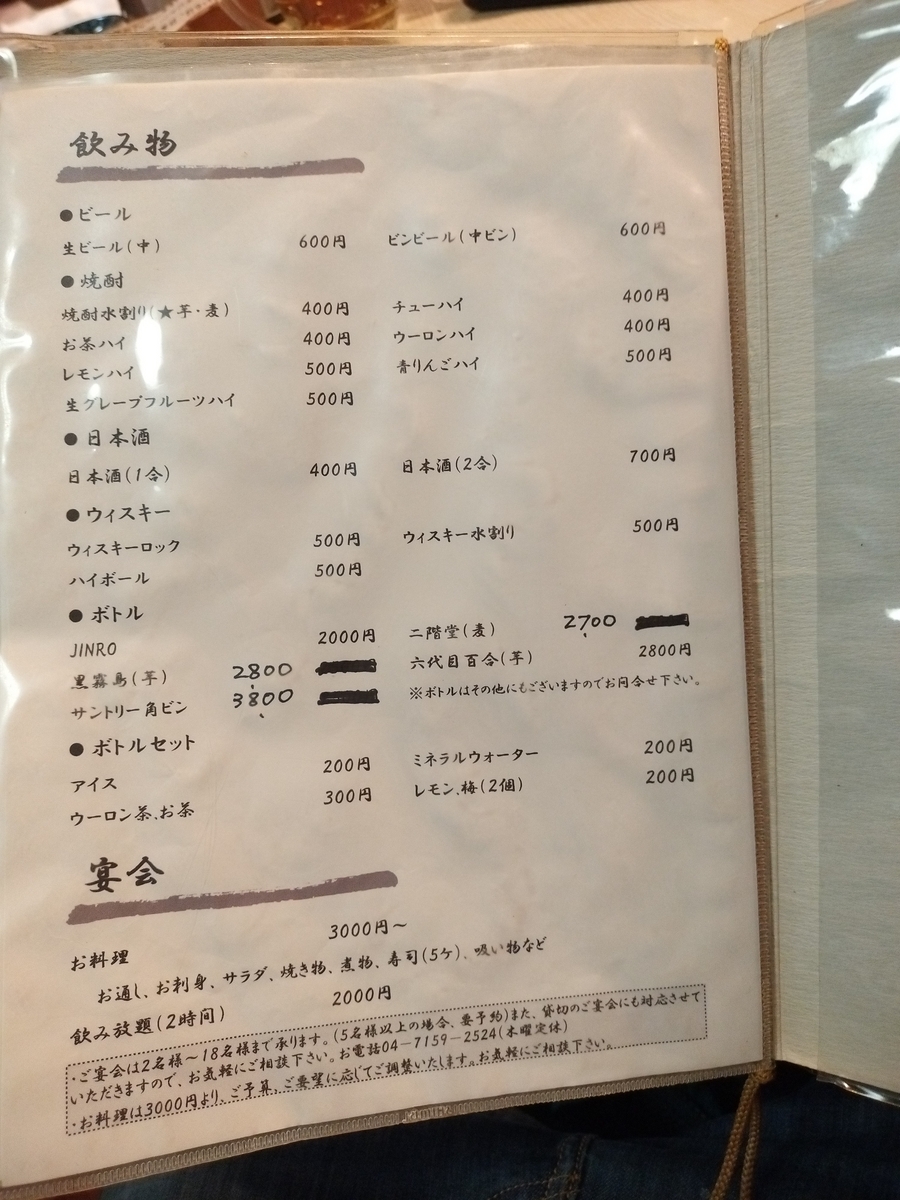 飲み物
●ビール
生ビール(中) 600円 ビンビール(中ビン) 600円
●焼酎
焼酎水割り(★芋・麦) 400円 チューハイ 400円
お茶ハイ 400円 ウーロンハイ 400円
レモンハイ 500円 青りんごハイ 500円
生グレープフルーツハイ 500円
●日本酒
日本酒(1合) 400円 日本酒(2合) 700円
●ウィスキー
ウィスキーロック 500円 ウィスキー水割り 500円
ハイボール 500円
●ボトル
JINRO 2000円 二階堂(麦) 2700
黒霧島(芋) 2800 六代目百合(芋) 2800円
サントリー角ビン 3800 ※ボトルはその他にもございますのでお問合せ下さい。
●ボトルセット
アイス 200円 ミネラルウォーター 200円
ウーロン茶、お茶 300円 レモン、梅(2個) 200円
宴会
お料理 3000円～
お通し、お刺身、サラダ、焼き物、煮物、寿司(5ケ)、吸い物など
飲み放題(2時間) 2000円
・ご宴会は2名様～18名様まで承ります。(5名様以上の場合、要予約)また、貸切のご宴会にも対応させて
いただきますので、お気軽にご相談下さい。お電話04－7159－2524(木曜定休)
・お料理は3000円より、ご予算、ご要望に応じてご調整いたします。お気軽にご相談下さい。